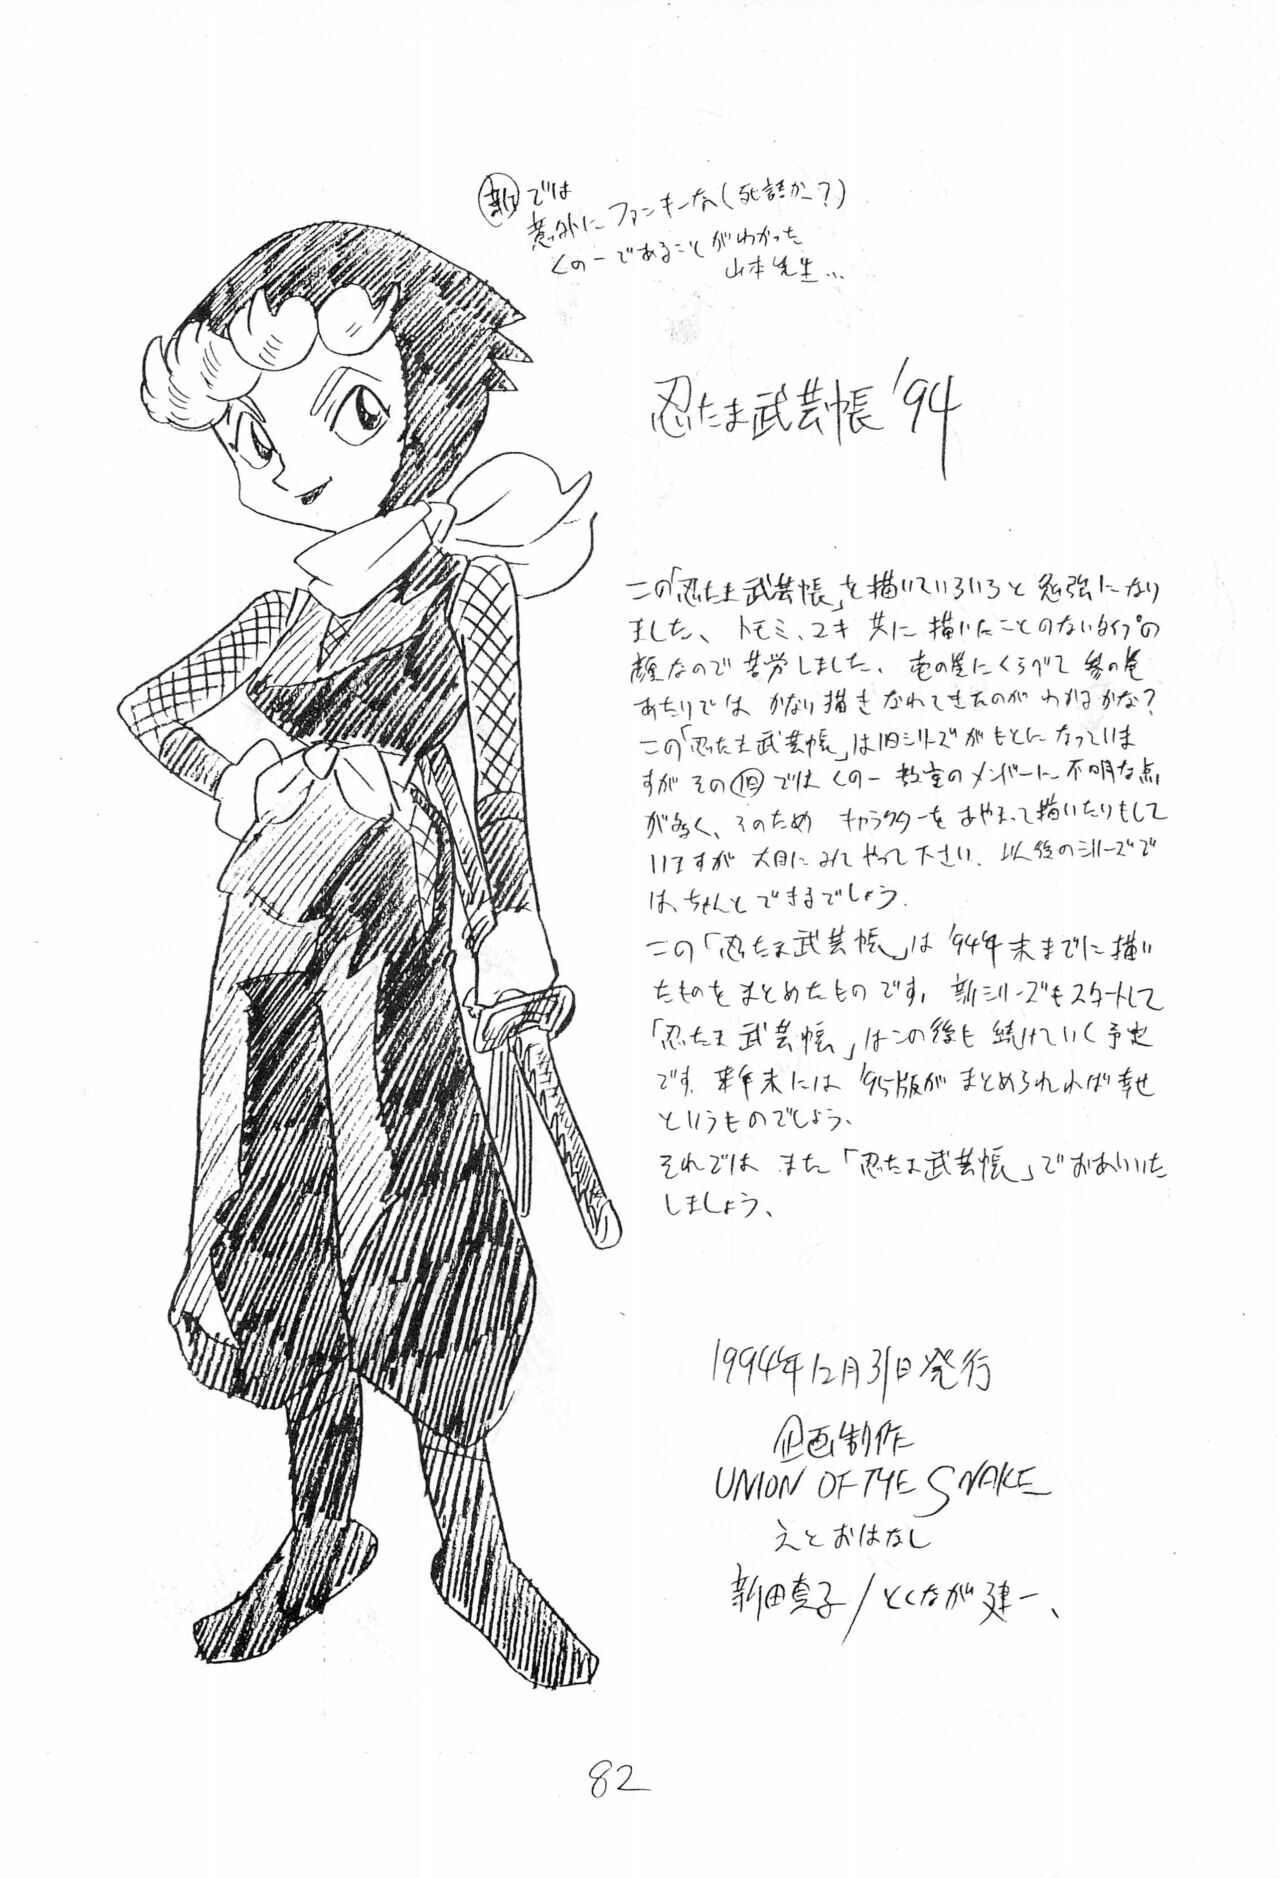 新では
意外にファンキーな(死語かー?)
くの一であることがわかった
山本先生…
忍たま武芸帳'94
この「忍たま武芸帳」を描いていろいろと勉強になり
ました、トモミ、ユキ共に描いたことのないタイプの
顔なので苦労しました、壱の巻にくらべて参の巻
あたりではかなり描きなれてきたのがわかるかな?
この「忍たま武芸帳」は旧シリーズがもとになっていま
すがその旧ではくの一教室のメンバーに不明な点
が多く、そのためキャラクターをあやまって描いたりもして
いますが大目にみてやって下さい、以後のシリーズで
はちゃんとできるでしょう.
この「忍たま武芸帳」は'94年末までに描い
たものをまとめたものです,新シリーズもスタートして
「忍たま武芸帳」はこの後も続けていく予定
です.来年末には'95版がまとめられれば幸せ
というものでしょう、
それではまた「忍たま武芸帳」でおあいいた
しましょう、
1994年12月31日発行
企画制作
UNION OF THE SNAKE
えとおはなし
新田真子/とくなが建一、
82